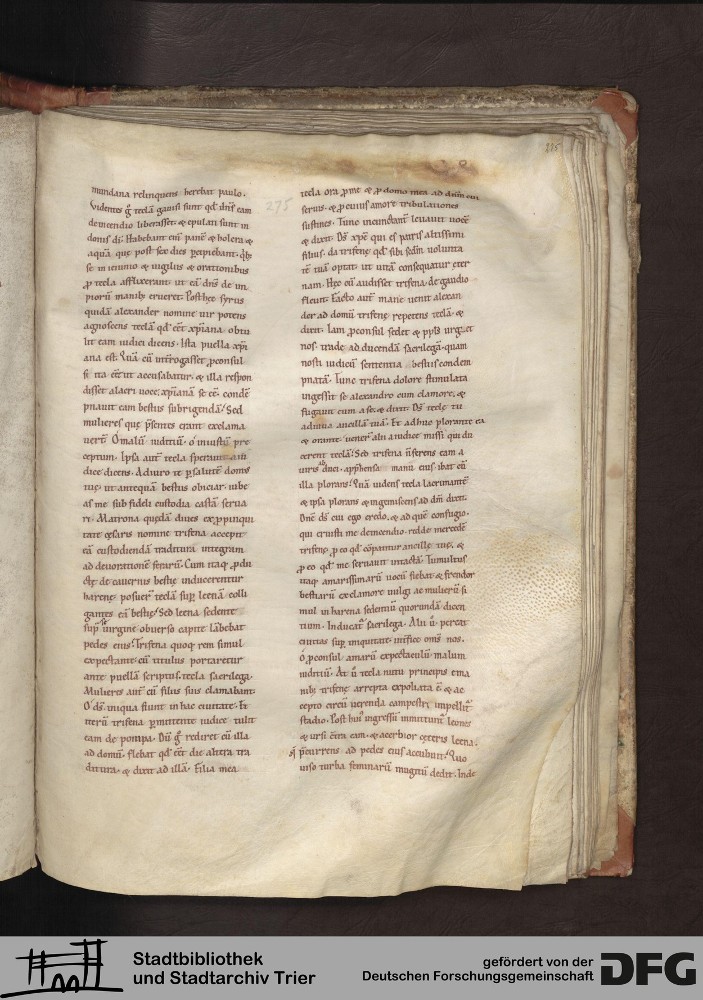 mundana relinquens herebat paulo.
Videntes g̃ teclã gauisi sunt qd̃ dñs eam
de incendio liberasset. & epulati sunt in
donis di. Habebant eni panẽ & holera &
aquã. que post sex dies p̃cipiebant. qb;
se in ieiunio & uigiliis & orationibus
ꝓ tecla afflixerant. ut eã dñs de im
piorũ manib; erueret. Posthec syrus
quidã alexander nomine uir potens
agnoscens teclã qd̃ eẽt xp̃iana. obtu
lit eam iudici dicens. Ista puella xp̃i
ana est. Quã cũ int̃rogasset ꝓconsul
si ita eẽt ut accusabatur. & illa respon
disset alacri uoce. xp̃ianã se eẽ. condẽ
pnauit eam bestiis subrigendã. Sed
mulieres que p̃sentes erant exclama
uerẽ. O malũ iuditiũ. o iniustũ pre
ceptum. Ipsa aut̃ tecla
dice dicens. Adiuro te p̃ salutẽ domis
tue. ut antequã bestiis obiciar. iube
as me sub fideli custodia castã serua
ri. Matrona quedã diues ex ꝓpinqui
tate cesaris nomine trifena accepit
eã custodiendã traditura integram
ad deuorationẽ ferarũ. Cum itaq; ꝓdu
cte de cauernis bestie inducerentur
harene. posuer̃ teclã sup̃ leenã colli
gantes eã bestie. Sed leena sedente
sup̃ se uirgine obuerso capite lãbebat
pedes eius. Trifena quoq; rem simul
expectante. cũ titulus portaretur
ante puellã scriptus. tecla sacrilega.
Mulieres aut̃ cũ filiis suis clamabant.
O ds̃. iniqua fiunt in hac ciuitate. Et
iterũ trifena p̃mittente iudice tulit
eam de pompa. Dũ g̃ rediret cũ illa
ad domũ. flebat qd̃ eẽt die altera tra
ditura. & dixit ad illã. Filia mea
tecla ora ꝓ me & ꝓ domo mea ad dñm cui
seruis. & ꝓ cuius amore tribulationes
sustines. Tunc incunctant̃ leuauit uocẽ
& dixit. Ds̃ xp̃e qui es patris altissimi
filius. da trifene qd̃ sibi sedm uolunta
tẽ tuã optat. ut uitã consequatur eter
nam. Hec cũ audisset trifena. de gaudio
fleuit. Facto aut̃ mane uenit alexan
der ad domũ trifene repetens teclã. &
dixit. Iam ꝓconsul sedet & ppl̃s urg&
nos. trade ad ducendã sacrilegã. quam
nostri iudicii sententia bestiis condem
pnatã. Tunc trifena dolore stimulata
ingessit se alexandro cum clamore. &
fugauit eum a se. & dixit. Ds̃ tecle tu
adiuua ancillã tuã. Et adhuc plorante ea
& orante. uener̃ alii a iudice missi qui du
cerent teclã. Sed trifena ñ ferens eam a
uiris duci. app̃hensa manu eius. ibat cũ
illa plorans. Quã uidens tecla lacrimantẽ
& ipsa plorans & ingemiscens ad dm̃ dixit.
Dñe ds̃ cui ego credo. & ad quẽ confugio.
qui eruisti me de incendio. redde mercedẽ
trifene. ꝓ eo qd̃ cõpatitur ancille tue. &
ꝓ eo qd̃ me seruauit intactã. Tumultus
itaq; amarissimarũ uocũ fiebat & fremdor
bestiarũ exclamore uulgi ac mulierũ si
mul in harena sedentiũ quorundã dicen
tium. Inducat̃ sacrilega. Alii ũ. pereat
ciuitas sup̃ iniquitatẽ. int̃fice om̃s nos.
o ꝓconsul. amarũ expectaculũ. malum
iuditiũ. At ũ tecla nutu principis e ma
nib; trifene arrepta. expoliata ẽ. & ac
cepto circũ uerenda campestri. impellit̃
stadio. Post hui; ingressũ inmittunt̃ leones
& ursi cõtra eam. & acerbior ceteris leena.
q̃ p̃currens ad pedes eius accubuit. Quo
uiso turba feminarũ mugitũ dedit. Inde
275
225
Stadtbibliothek
und Stadtarchiv Trier
gefördert von der
Deutschen Forschungsgemeinschaft
DFG